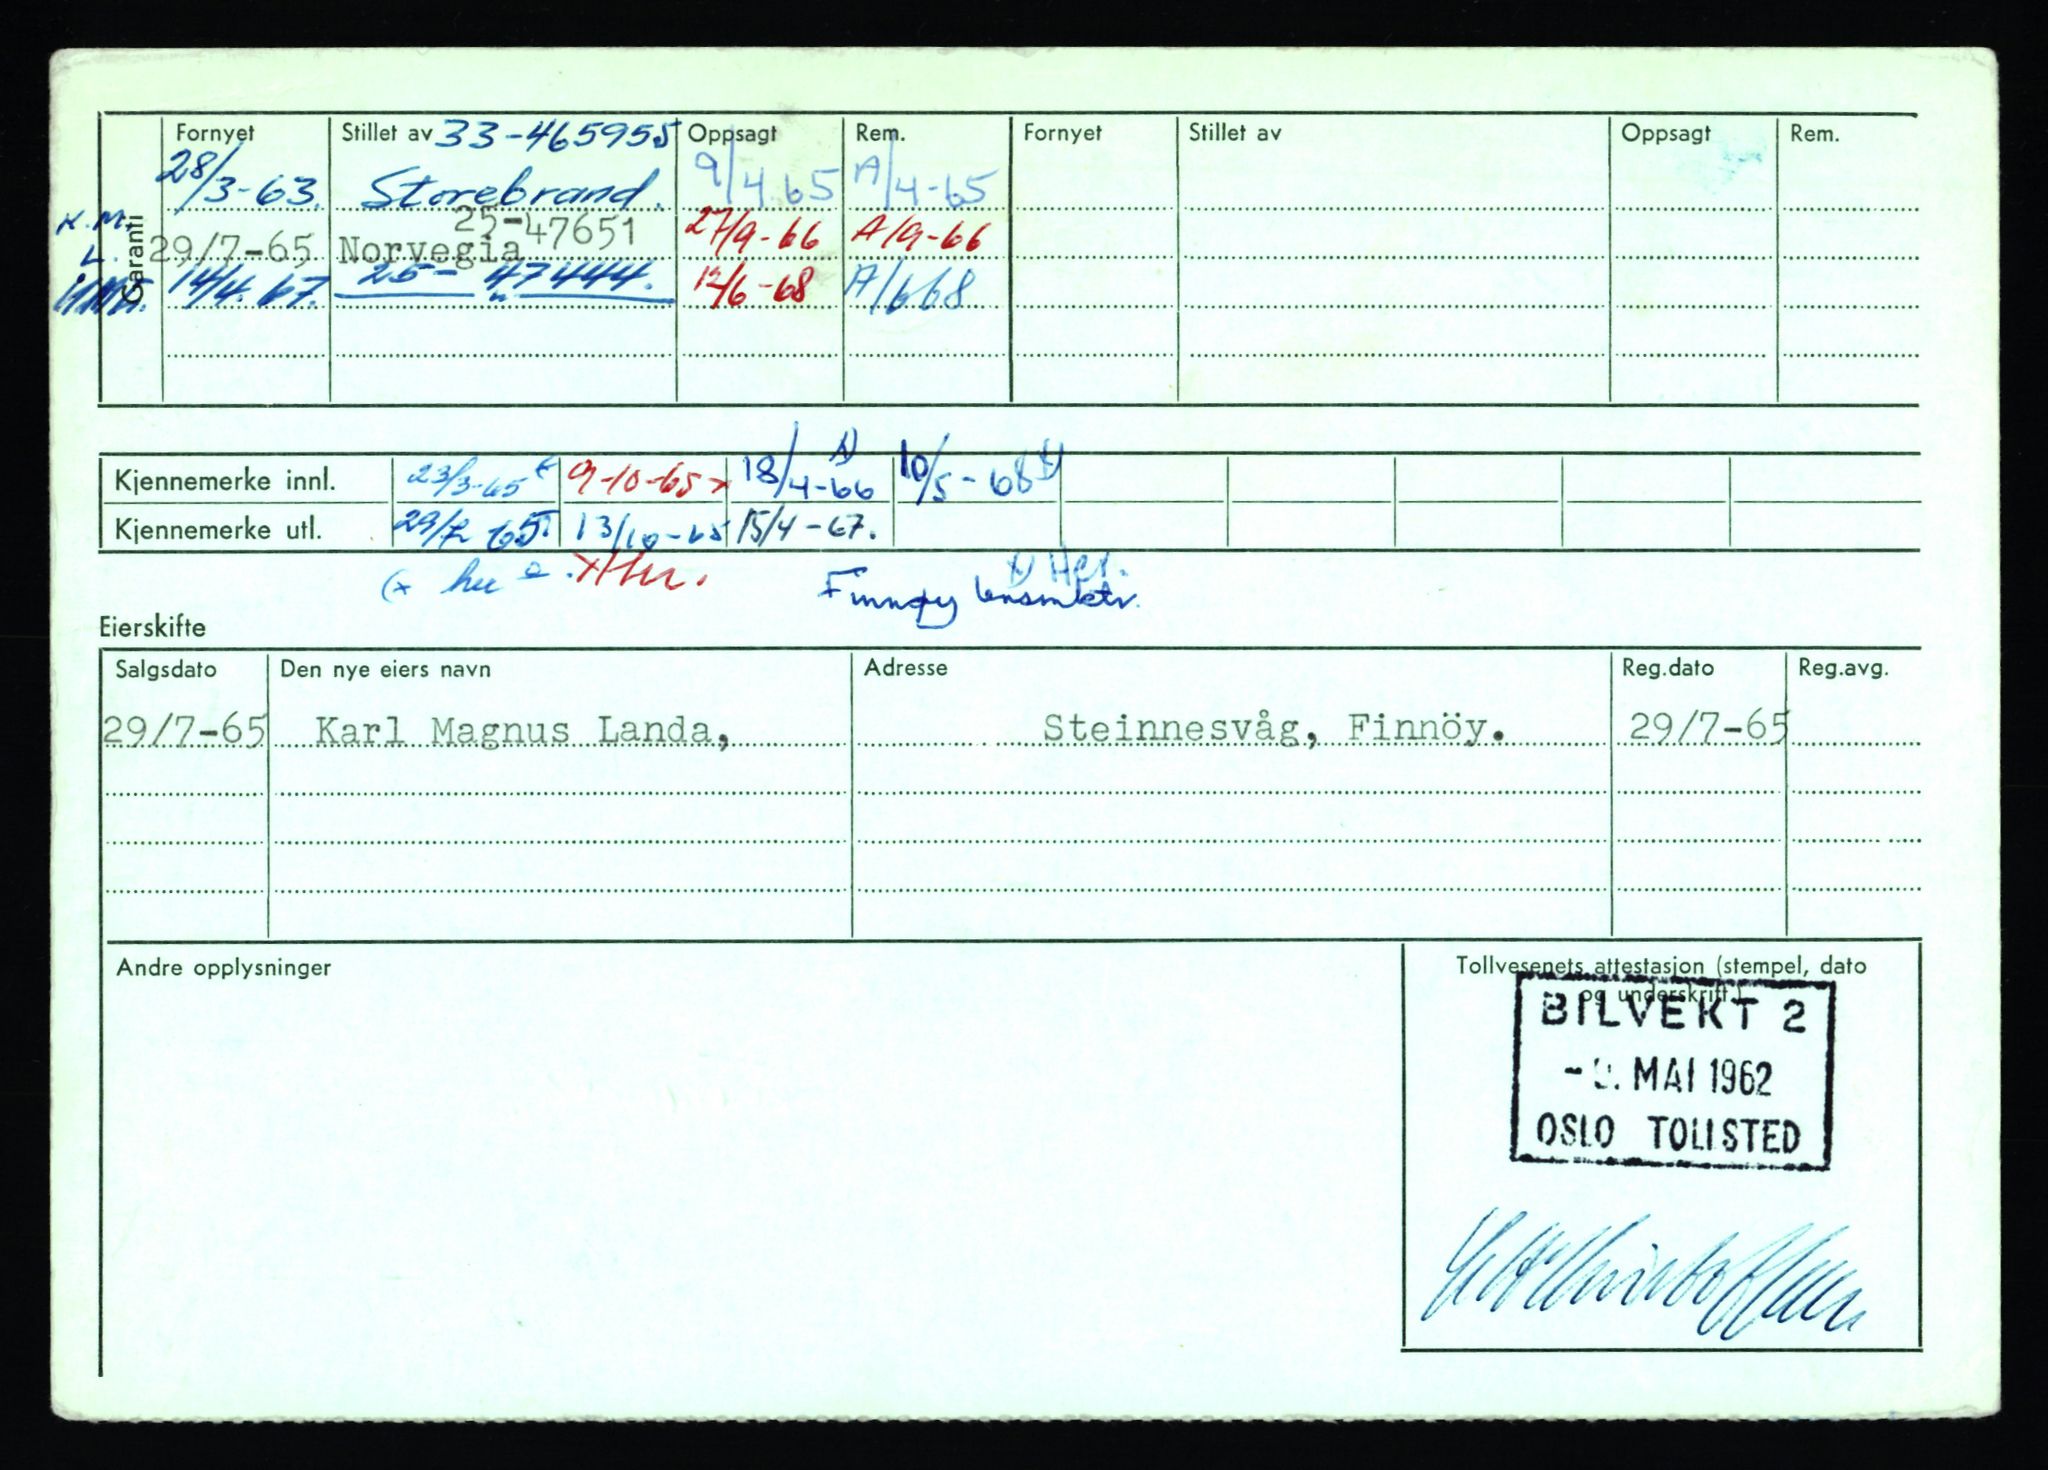 Fornyet Stillet av 33-465955 Oppsagt Rem. Fornyet Stillet av Oppsagt Rem.
28/3-63. Storebrand. 9/4 65 A/4-65
K.M. 25-47651
L. 29/7-65 Norvegia 27/9-66 A/9-66
14/4. 67. 25- 47444. 12/6-68 A/6 68
Garanti
Kjennemerke innl. 23/3-65 9-10-65 x 18/4-66 10/5-68
Kjennemerke utl. 29/7 65 13/10-65 15/4-67.
Finnøy lensmktr.
Eierskifte
Salgsdato Den nye eiers navn Adresse Reg.dato Reg.avg.
29/7-65 Karl Magnus Landa, Steinnesvåg, Finnöy. 29/7-65
Andre opplysninger
Tollvesenets attestasjon (stempel, dato
og underskrift)
BILVEKT 2
MAI 1962
OSLO TOLLSTED